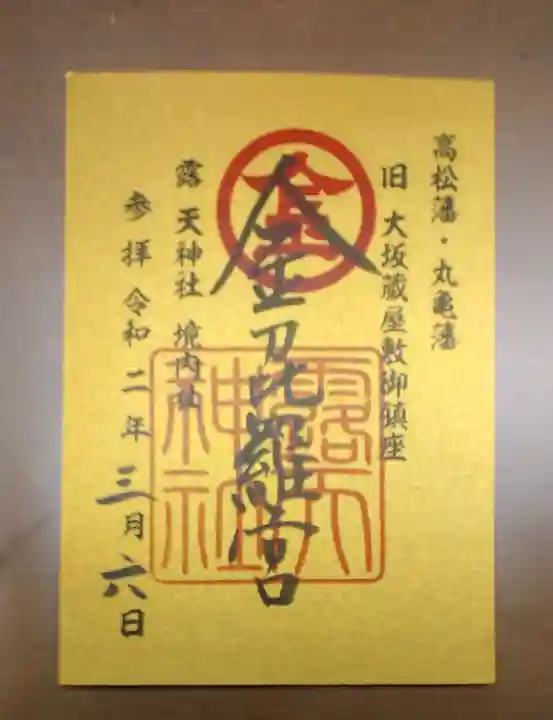 高松藩・丸亀藩
旧 大坂蔵屋敷御鎮座
金
金刀比羅宮
露天神社
露 天神社 境内社
参拝 令和二年三月六日